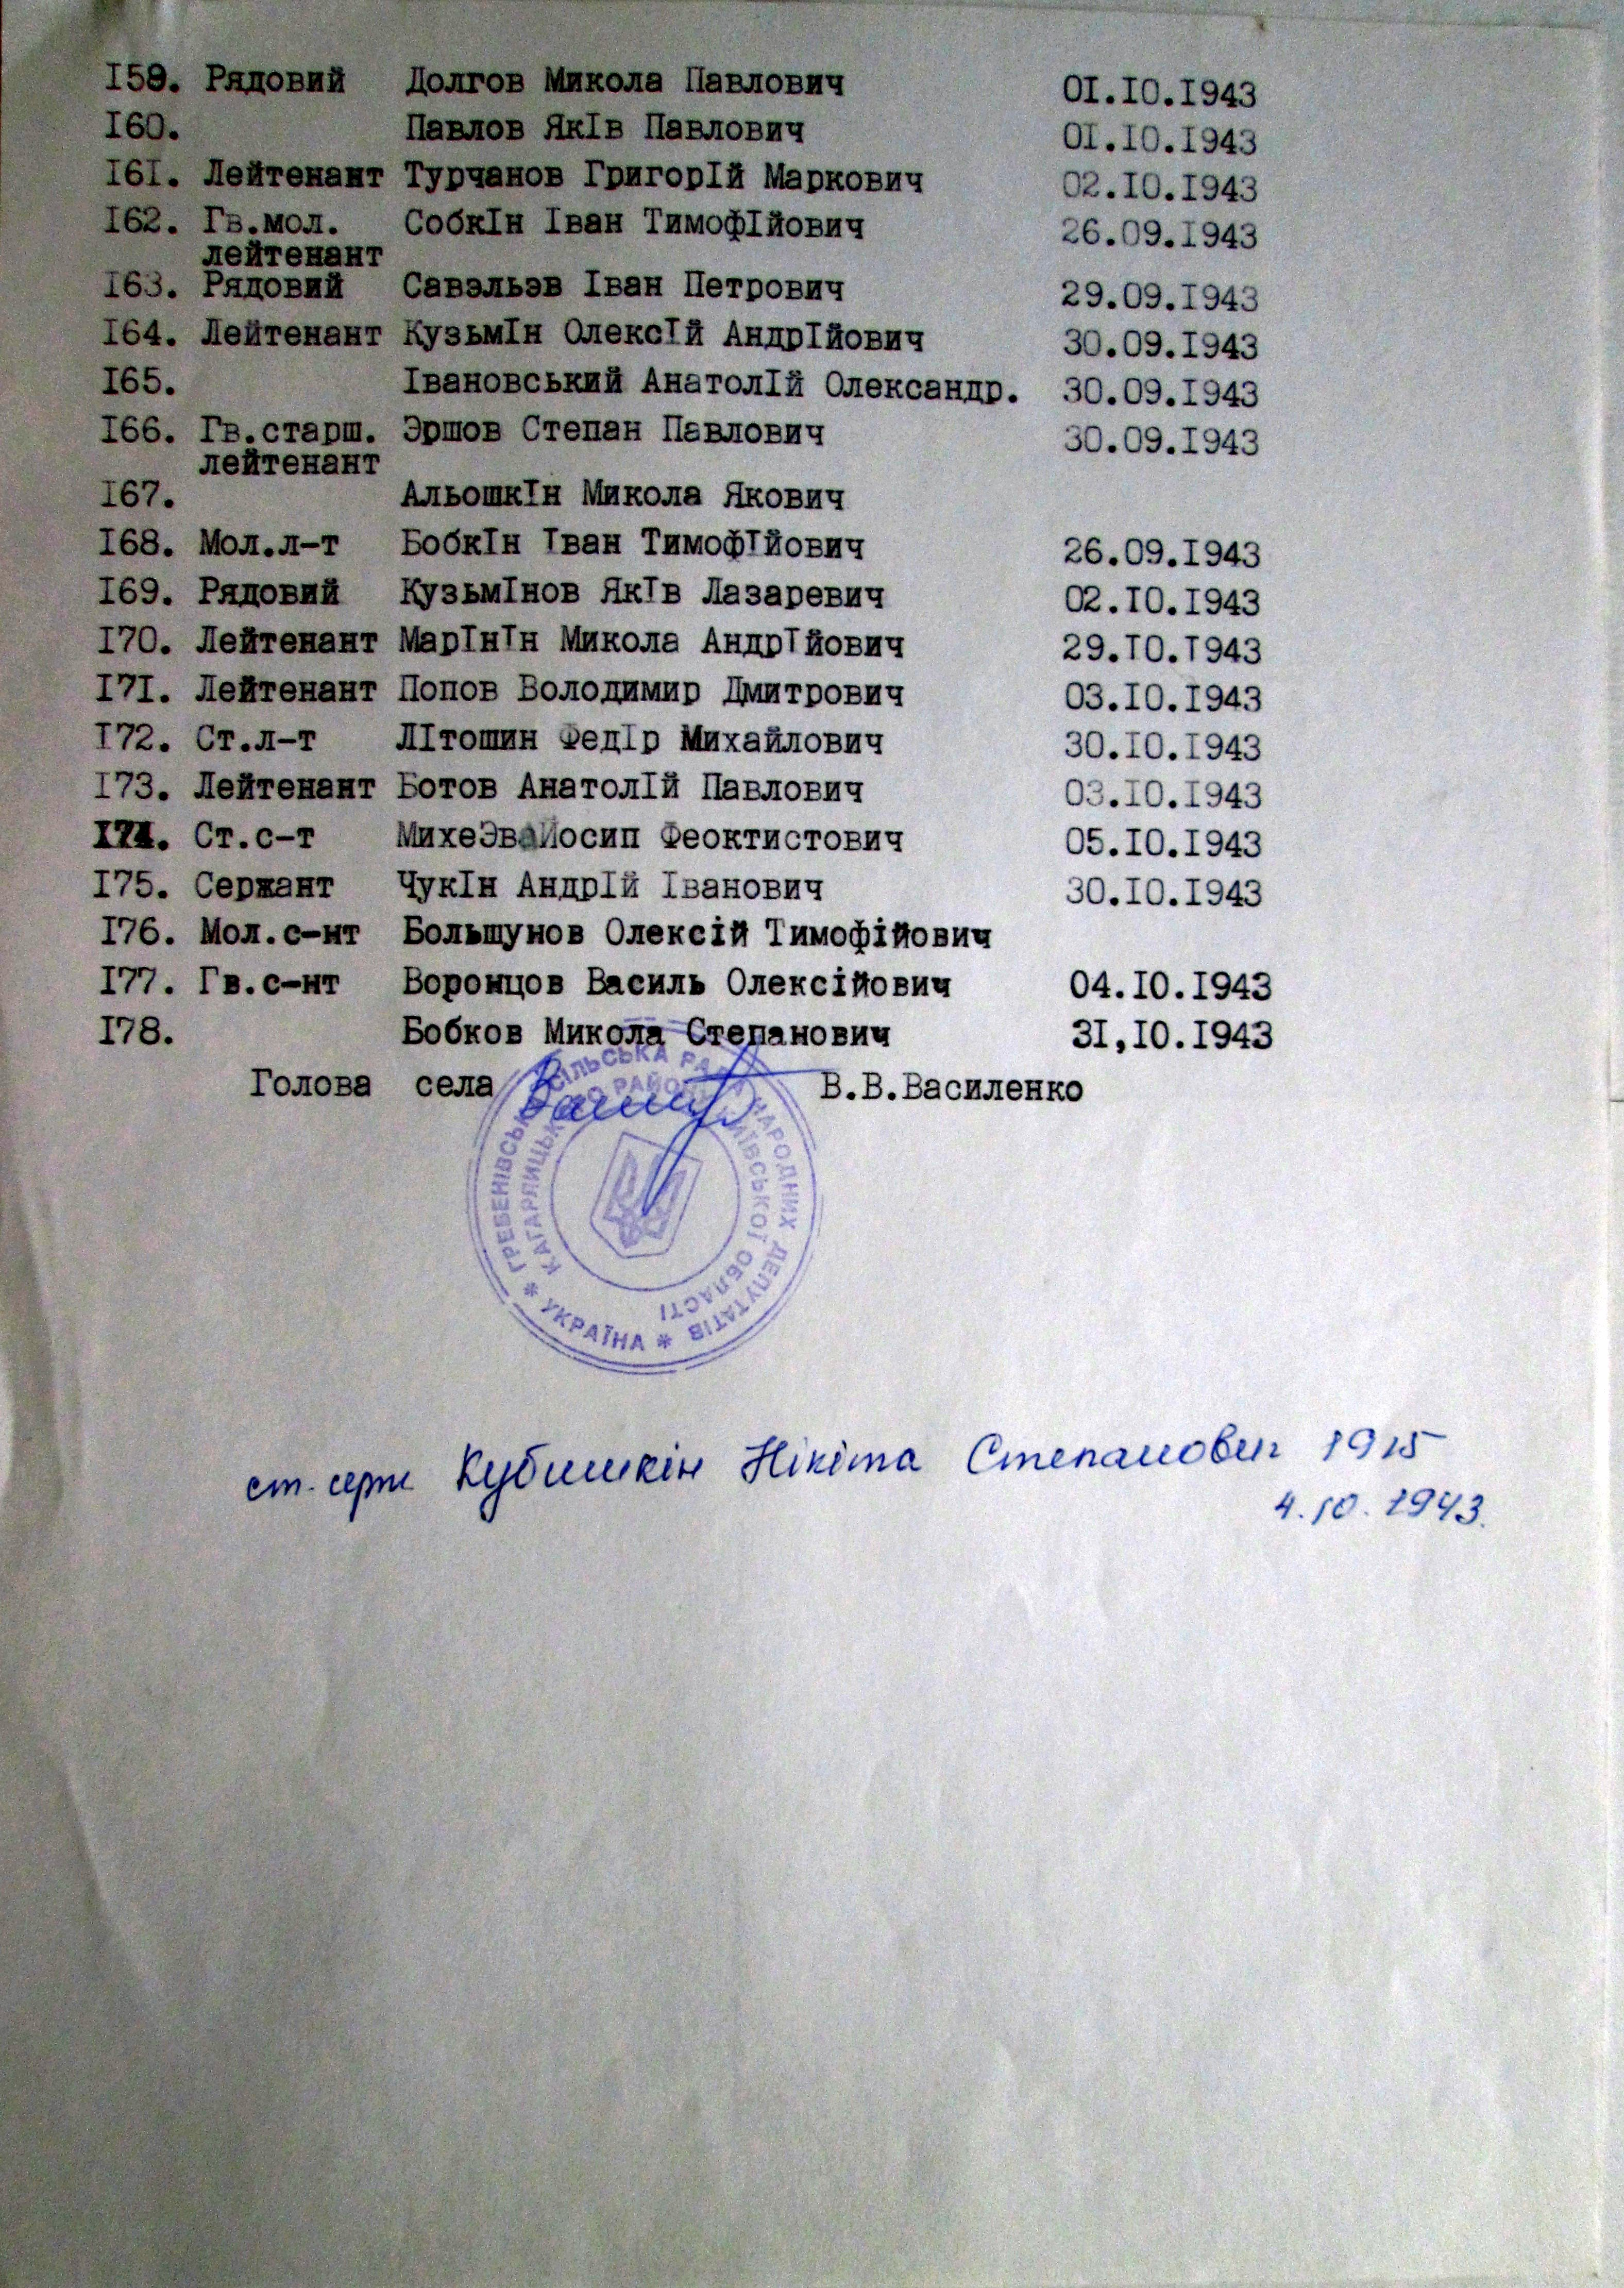 I59. Рядовий Долгов Микола Павлович 0I.I0.I943
I60. Павлов ЯкIв Павлович 0I.I0.I943
I6I. Лейтенант Турчанов ГригорIй Маркович 02.I0.I943
I62. Гв.мол. СобкIн Iван ТимофIйович 26.09.I943
лейтенант
I63. Рядовий Савэльэв Iван Петрович 29.09.I943
I64. Лейтенант КузьмIн ОлексIй АндрIйович 30.09.I943
I65. Iвановський АнатолIй Олександр. 30.09.I943
I66. Гв.старш. Эршов Степан Павлович 30.09.I943
лейтенант
I67. АльошкIн Микола Якович
I68. Мол.л-т БобкIн Iван ТимофIйович 26.09.I943
I69. Рядовий КузьмIнов ЯкIв Лазаревич 02.I0.I943
I70. Лейтенант МарIнIн Микола АндрIйович 29.I0.I943
I7I. Лейтенант Попов Володимир Дмитрович 03.I0.I943
I72. Ст.л-т ЛIтошин ФедIр Михайлович 30.I0.I943
I73. Лейтенант Ботов АнатолIй Павлович 03.I0.I943
I74. Ст.с-т МихеЭва Йосип Феоктистович 05.I0.I943
I75. Сержант ЧукIн АндрIй Iванович 30.I0.I943
I76. Мол.с-нт Большунов Олексій Тимофійович
I77. Гв.с-нт Воронцов Василь Олексійович 04.I0.I943
I78. Бобков Микола Степанович 3I,I0.I943
Голова села В.В.Василенко
ГРЕБЕНІВСЬКА СІЛЬСЬКА РАДА НАРОДНИХ ДЕПУТАТІВ
КАГАРЛИЦЬКОГО РАЙОНУ КИЇВСЬКОЇ ОБЛАСТІ
* УКРАЇНА *
ст. серж Кубишкін Нікіта Степанович 1915
4.10.1943.